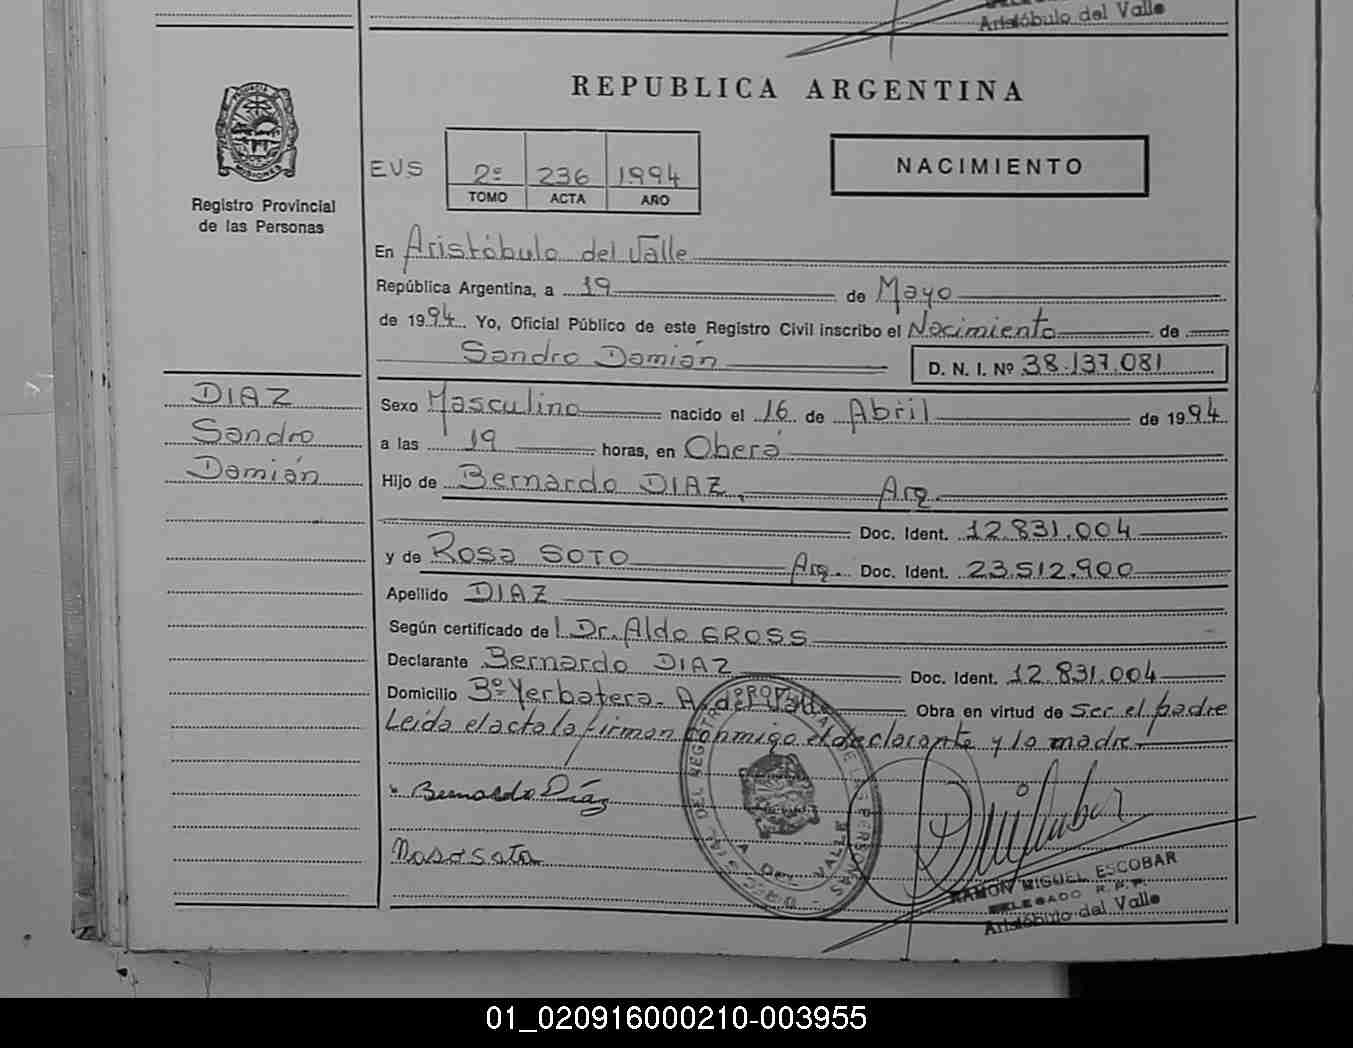 Aristóbulo del Valle
REPUBLICA ARGENTINA
PROVINCIA DE MISIONES
Registro Provincial
de las Personas
EVS
2º 236 1994
TOMO ACTA AÑO
NACIMIENTO
En Aristóbulo del Valle
República Argentina, a 19 de Mayo
de 1994. Yo, Oficial Público de este Registro Civil inscribo el Nacimiento de
Sandro Damián D. N. I. Nº 38.137.081
DIAZ
Sandro
Damián
Sexo Masculino nacido el 16 de Abril de 1994
a las 19 horas, en Oberá
Hijo de Bernardo DIAZ, Arg.
Doc. Ident. 12.831.004
y de Rosa SOTO Arg. Doc. Ident. 23.512.900
Apellido DIAZ
Según certificado del Dr. Aldo GROSS
Declarante Bernardo DIAZ Doc. Ident. 12.831.004
Domicilio Bº Yerbatera. A. del Valle Obra en virtud de ser el padre
Leída el acta la firman conmigo el declarante y la madre.
Bernardo Díaz
Rosa Soto
A. DEL VALLE
RAMON MIGUEL ESCOBAR
DELEGADO R.P.P.
Aristóbulo del Valle
01_020916000210-003955